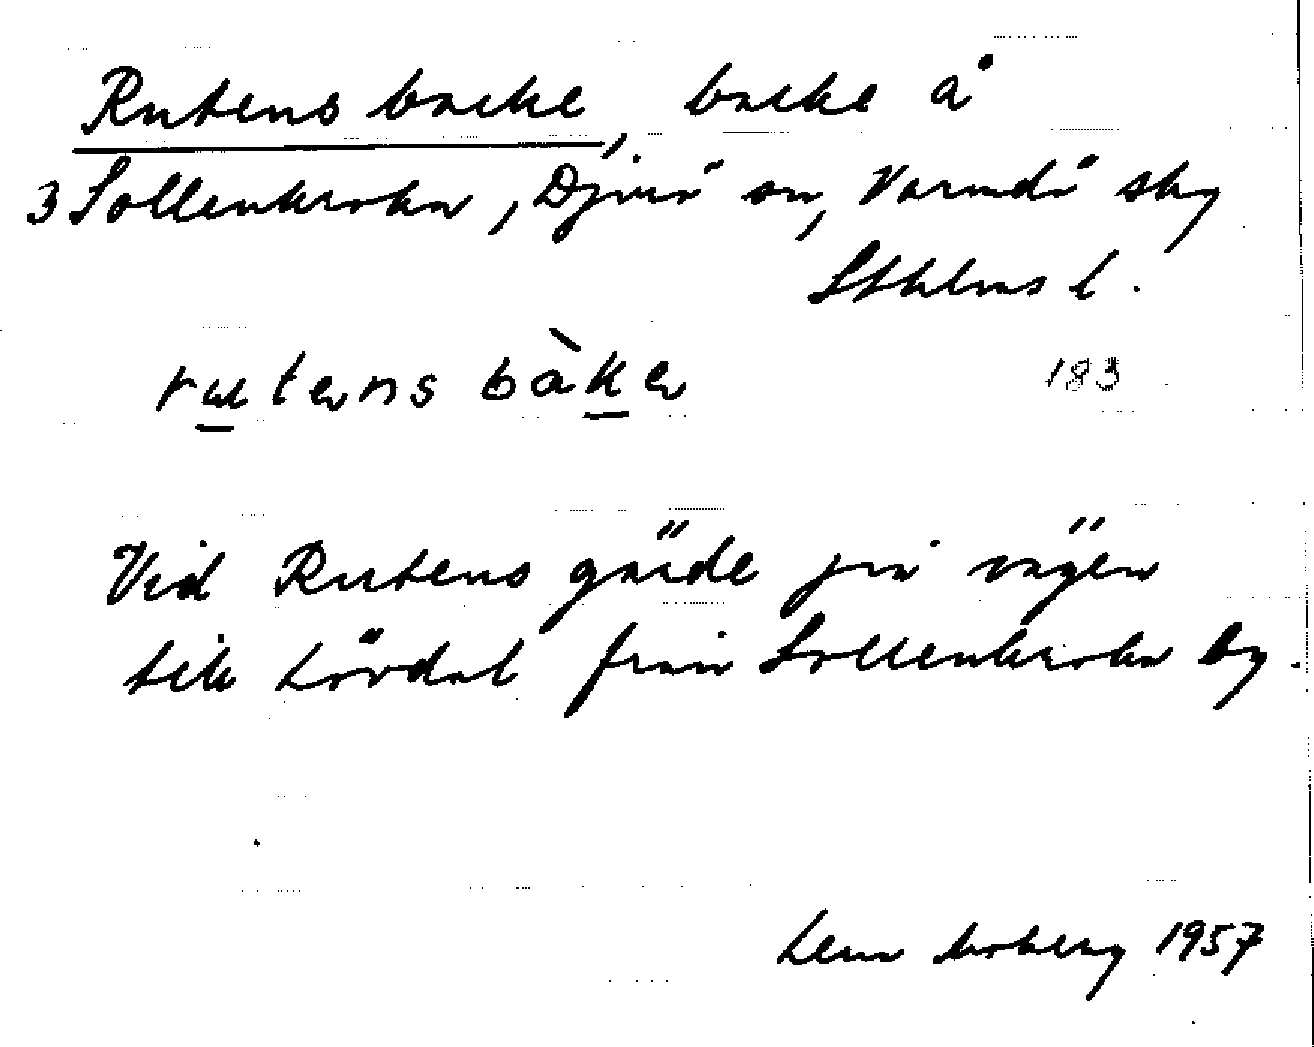 Rutens backe, backe å
3 Sollenkroka, Djurö sn, Värmdö skg
Sthlms l.
rutens bàke
183
Vid Rutens gärde på vägen
till Lövdal från Sollenkroka by.
Lena Moberg 1957